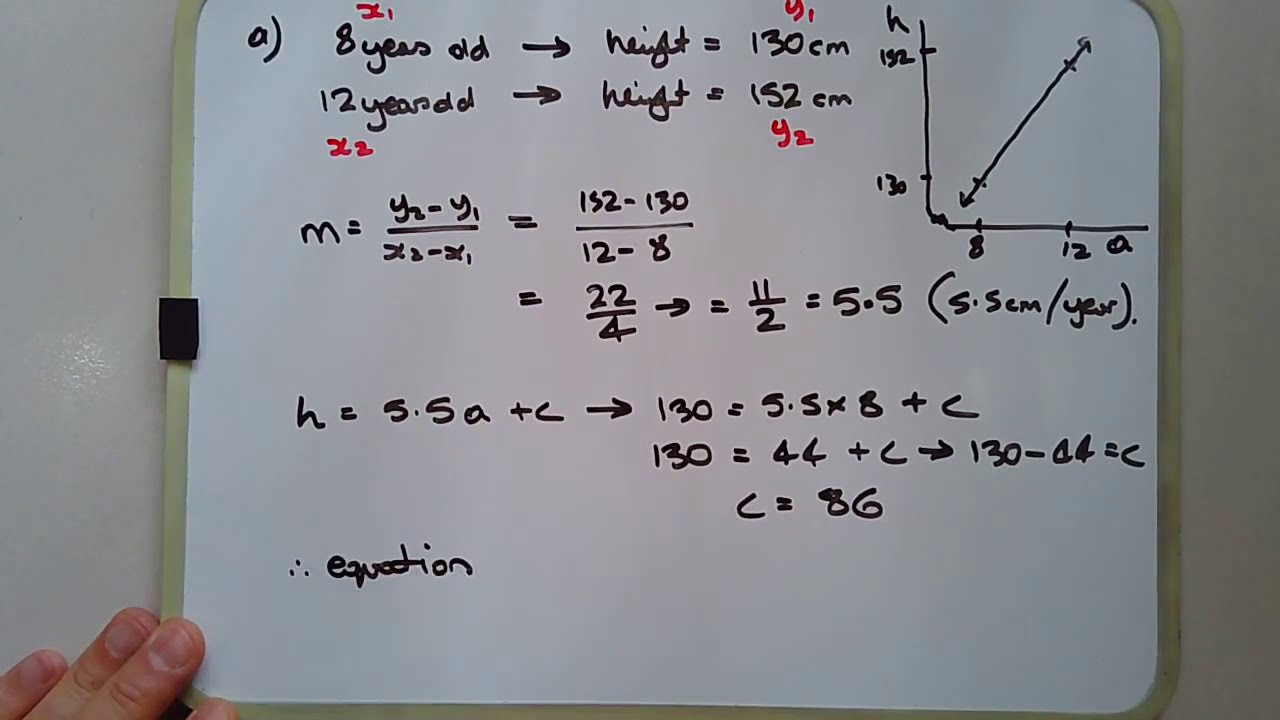 x₁ y₁
a) 8 years old → height = 130 cm
12 years old → height = 152 cm
x₂ y₂
h
152
130
8 12 a
m = (y₂ - y₁)/(x₂ - x₁) = (152 - 130)/(12 - 8)
= 22/4 → = 11/2 = 5.5 (5.5cm/year).
h = 5.5a + c → 130 = 5.5 × 8 + c
130 = 44 + c → 130 - 44 = c
c = 86
∴ equation